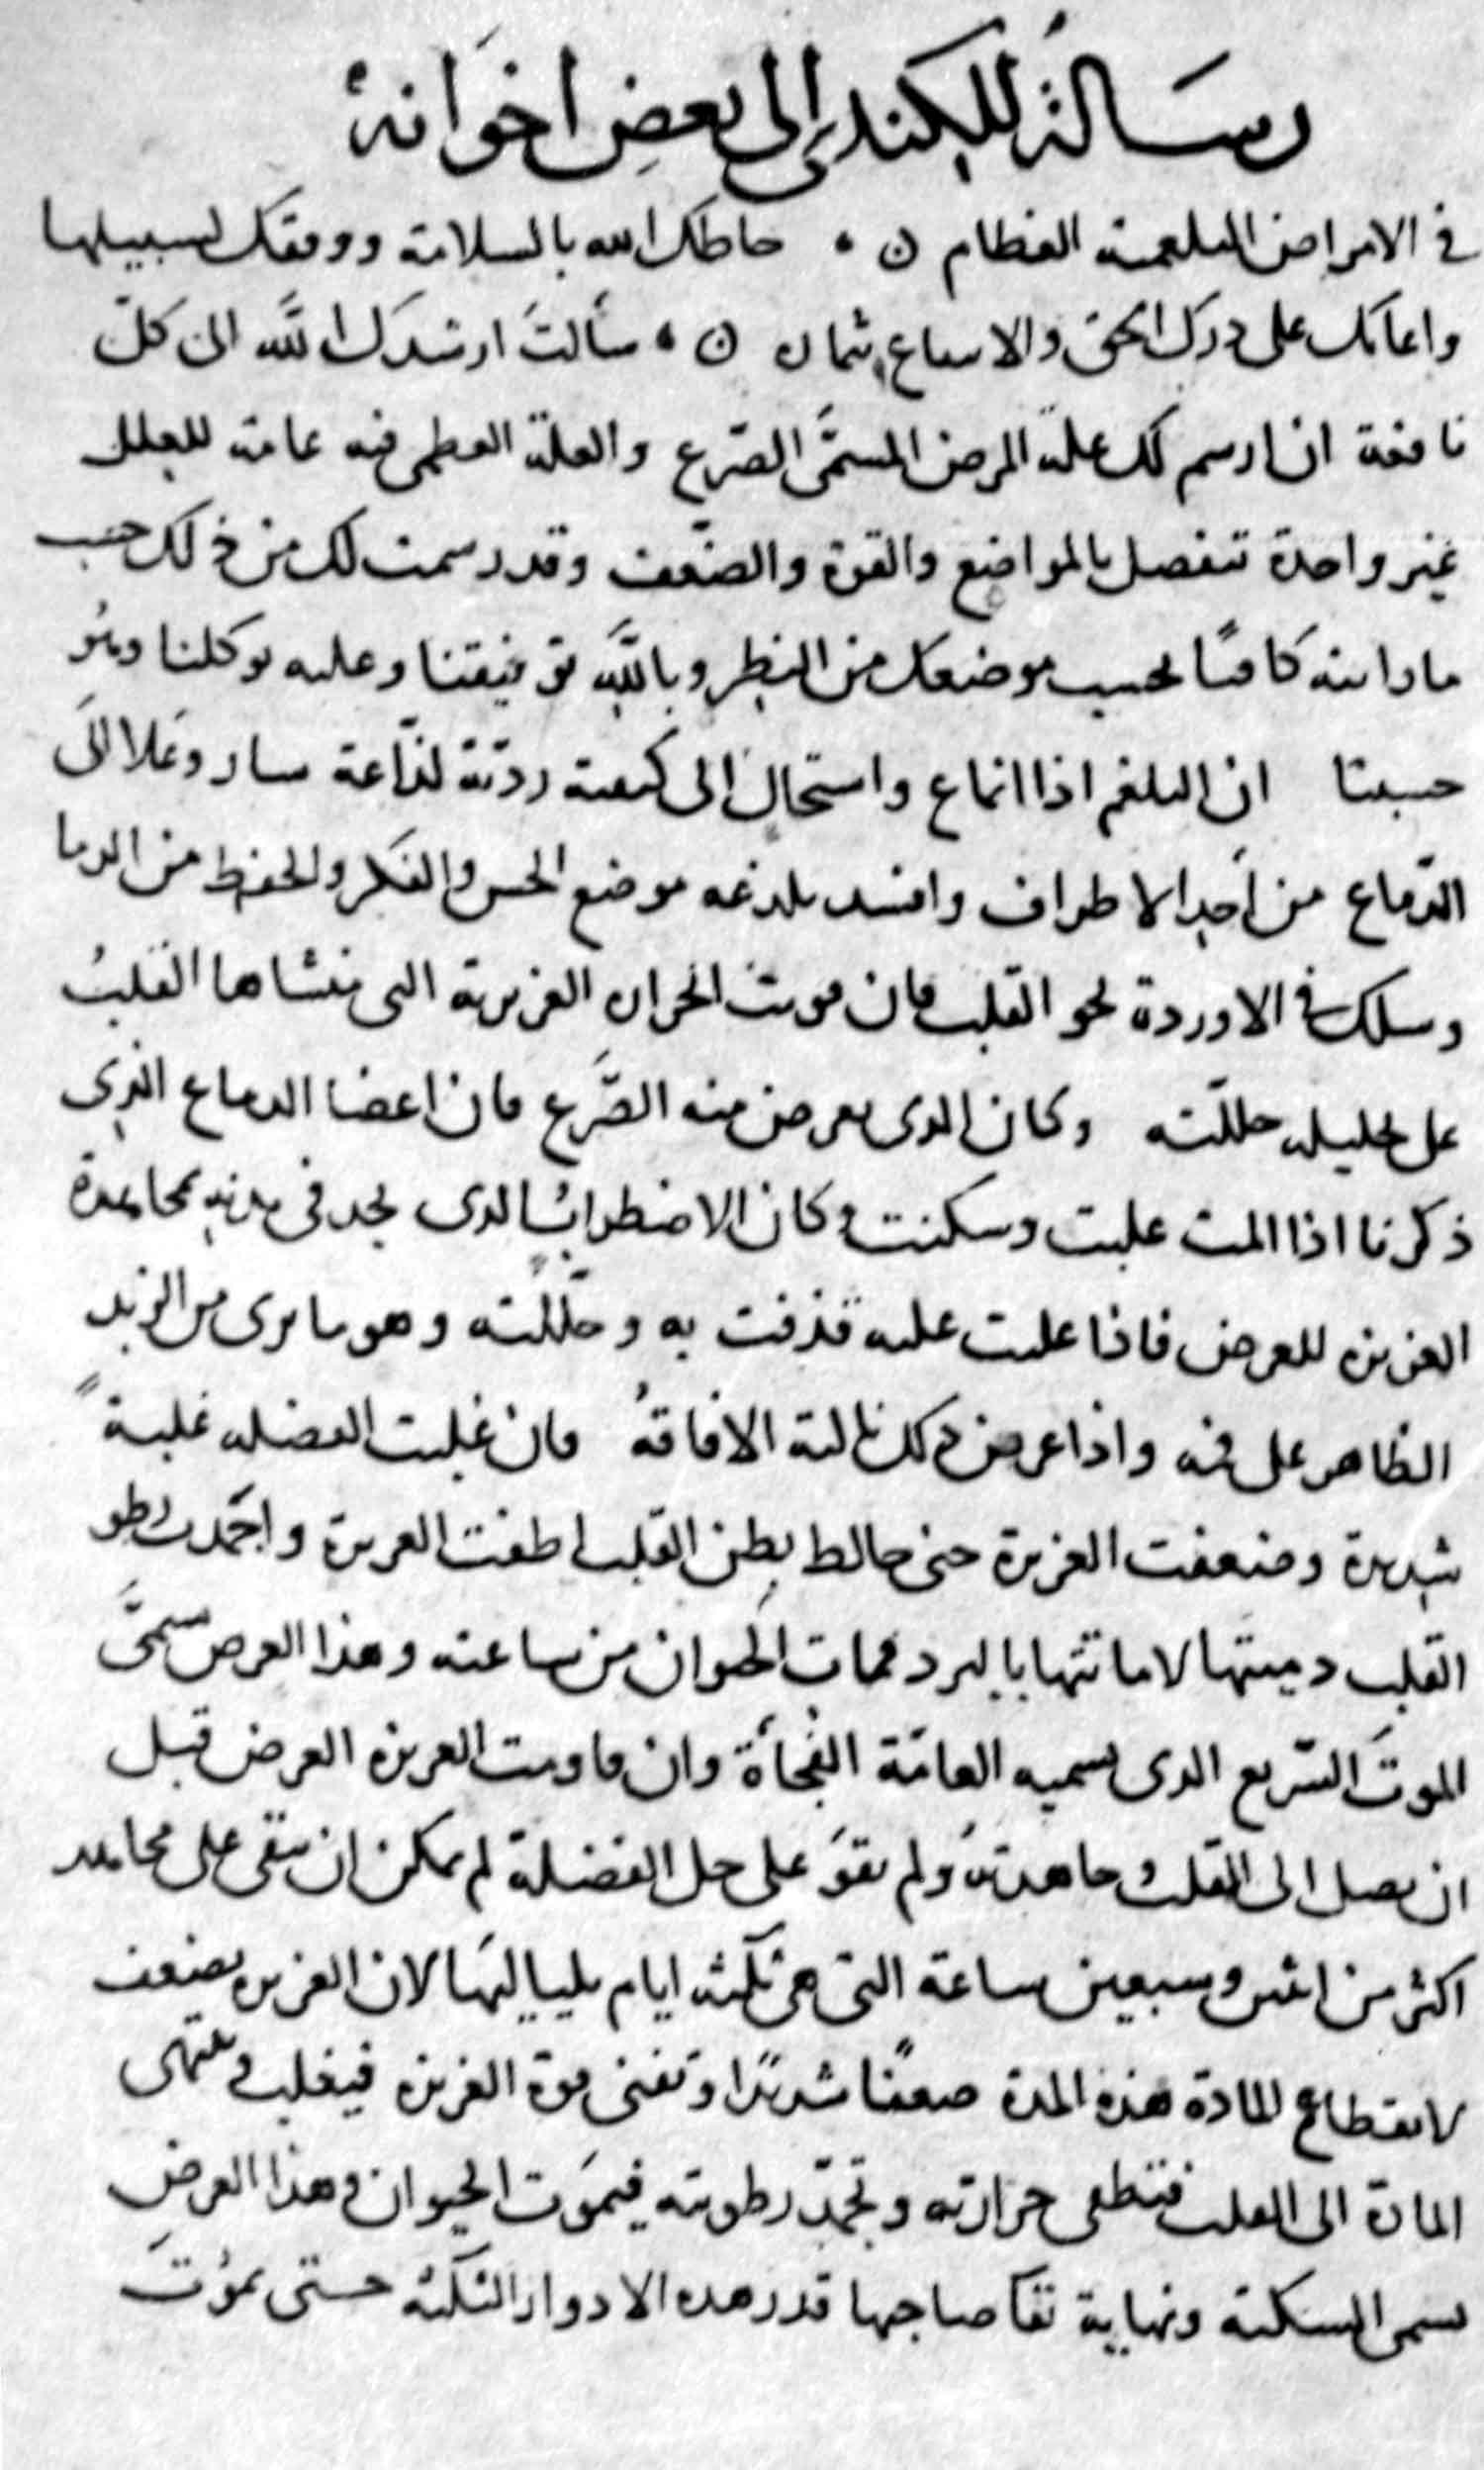 رسالة للكندي إلى بعض اخوانه
في الامراض البلغمية العظام ۞ حاطك الله بالسلامة ووفقك لسبيلها
واعانك على درك الحق والانتفاع بثماره ۞ سألتَ ارشدك الله الى كلّ
نافعة ان ارسم لك علة المرض المسمَّى الصّرع والعلة العظمى فيه عامة للعلل
غير واحدة تنفصل بالمواضع والقوة والضّعف وقد رسمت لك من ذلك حسب
ما رايته كافيًا بحسب موضعك من النظر وبالله توفيقنا وعليه توكلنا وهُو
حسبنا ان البلغم اذا انماع واستحال الى كيفية رديّة لذّاعة سار وعَلا الَى
الدّماغ من أحد الاطراف وافسد بلذعه موضع الحس والفكر والحفظ من الدما
وسلك في الاوردة نحو القلب فان قويت الحراره الغريزية التى منشاها القلبُ
على تحليله حللّته وكان الذى يعرض منه الصَّرع فان اعضا الدماغ الذى
ذكرنا اذا المت غلبت وسكنت وكان الاضطراب الذى نجد فى بدنه مجاهدة
الغريزه للعرض فاذا غلبت عليه قذفت به وحلّلته وهو ما يرى من الزبد
الظاهر على فيه واذا عرض ذلك نالته الافاقةُ فان غلبت الفضله غلبةً
شديدة وضعفت الغريزة حتى خالط بطن القلب اطفت الغريزة واجمدت رطو
القلب دميتها لاماتتها بالبرد فمات الحيوان من ساعته وهذا العرض يسمَّى
الموتَ السّريع الذى تسميه العامّة الفُجأة وان قاومت الغريزه العرض قبل
ان يصل الى القلب وجاهدته ولم تقوَ على حل الفضلة لم يمكن ان تبقى على مجاهد
اكثر من اثنين وسبعين ساعة التى هى ثلثه ايام بلياليها لان الغريزه يضعف
لانقطاع المادة هذه المدة ضعفًا شديدًا وتفنى قوة الغريزه فيغلب وتنتهى
المادة الى القلب فتطفى حرارته وتجمّد رطوبته فيموَت الحيوان وهذا العرض
يسمى السكتة ونهاية بقا صاحبها قدر هذه الادوار الثلثه حتى يموُتَ